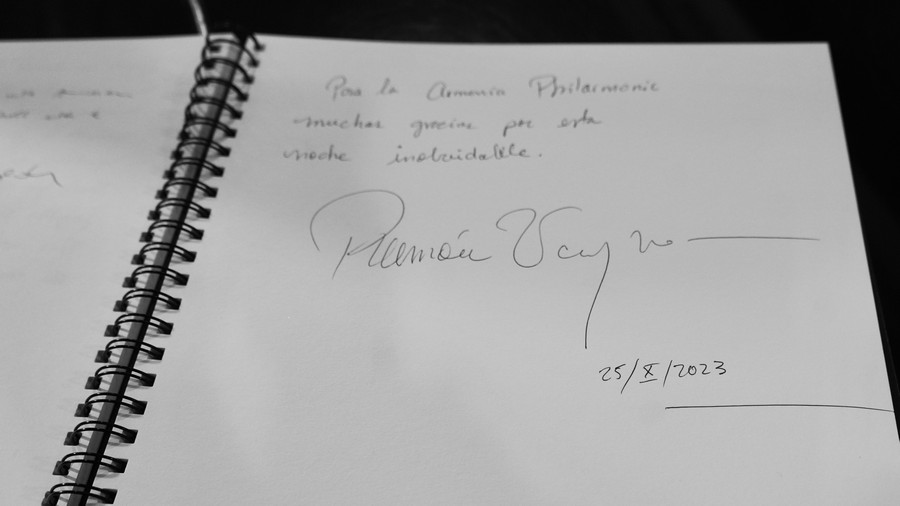 Para la Armenia Philarmonic
muchas gracias por esta
noche inolvidable.
Ramón Vargas
25/X/2023